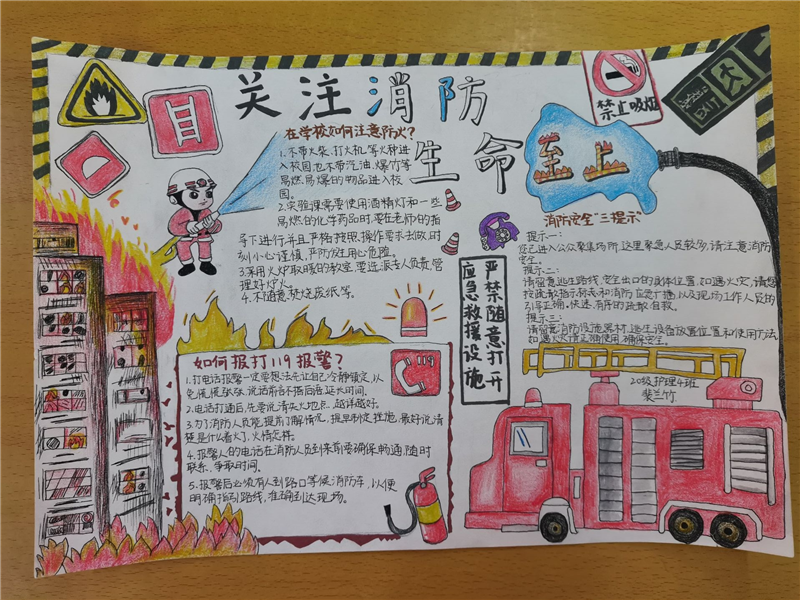 关注消防
生命至上
禁止吸烟
EXIT
在学校如何注意防火?
1.不带火柴、打火机等火种进
入校园,也不带汽油、爆竹等
易燃、易爆的物品进入校
园。
2.实验课需要使用酒精灯和一些
易燃的化学药品时,要在老师的指
导下进行,并且严格按照操作要求去做,时
刻小心谨慎,严防发生用心危险。
3.采用火炉取暖的教室,要选派专人负责,管
理好炉火。
4.不随意焚烧废纸等。
消防安全“三提示”
提示一:
您已进入公众聚集场所,这里聚急人员较多,请注意消防
安全。
提示二:
请留意逃生路线,安全出口的具体位置,如遇火灾,请您
按疏散指示标志和消防应急广播以及现场工作人员的
引导正确、快速、有序的疏散自救。
提示三:
请留意消防设施器材、逃生设备放置位置和使用方法,
如遇火灾请正确使用,确保安全。
严禁随意打开
应急救援设施
如何报打119报警?
1.打电话报警一定要想法先让自己冷静镇定,以
免慌慌张张,说话前言不搭后语,延长时间。
2.电话打通后,先要说清失火地点,越详越好。
3.为了消防人员能提前了解情况,提早制定措施,最好说清
楚是什么着火,火情怎样。
4.报警人的电话在消防人员到来前要确保畅通,随时
联系,争取时间。
5.报警后必须有人到路口等候消防车,以便
明确指引路线,准确到达现场。
119
20级护理4班
裴兰竹